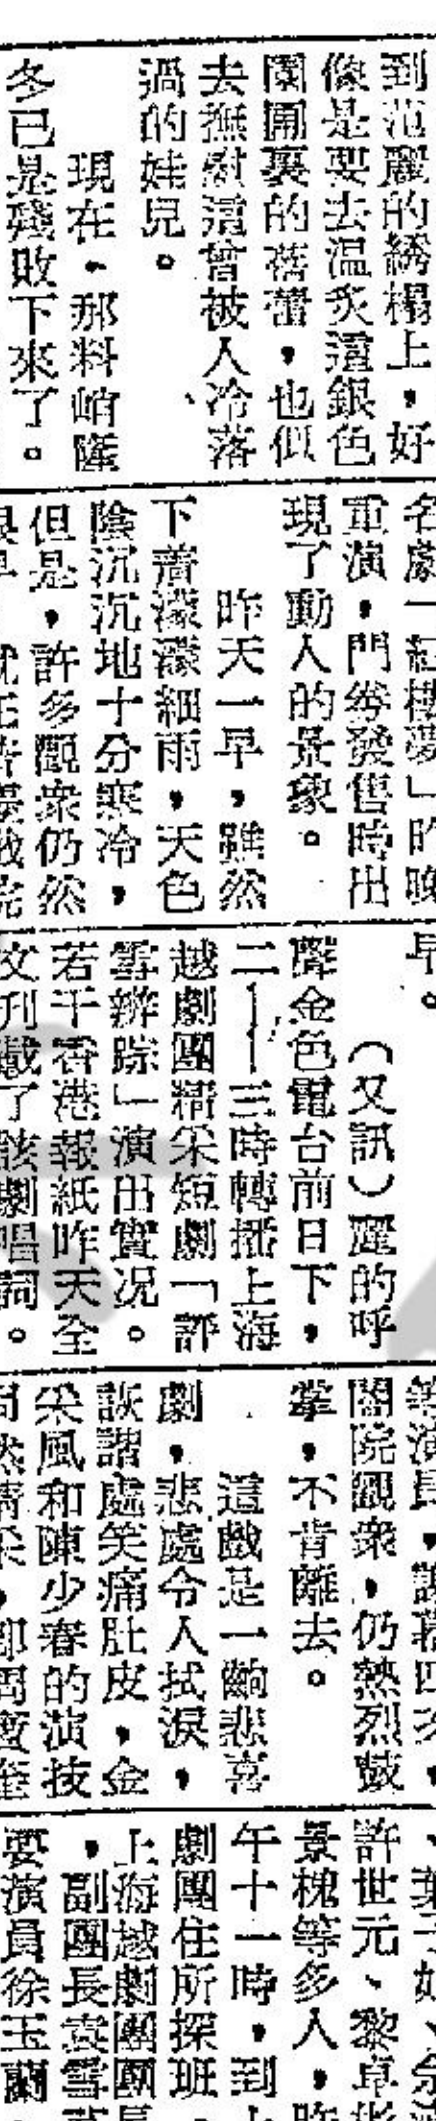 到範麗的綉榻上，好
像是要去溫炙這銀色
圍開裏的蓓蕾，也似
去撫慰這曾被人冷落
過的娃兒。
現在，那料峭隆
冬已是殘敗下來了。
名劇「紅樓夢」昨晚
重演，門券發售時出
現了動人的景象。
昨天一早，雖然
下着濛濛細雨，天色
陰沉沉地十分寒冷，
但是，許多觀衆仍然
早。
（又訊）麗的呼
聲金色電台前日下，
二——三時轉播上海
越劇團精采短劇「評
雪辨踪」演出實况。
若干香港報紙昨天全
文刊載了該劇唱詞。
等演員，謝幕四次，
闔院觀衆，仍熱烈鼓
掌，不肯離去。
這戲是一齣悲喜
劇，悲處令人拭淚，
詼諧處笑痛肚皮，金
采風和陳少春的演技
許世元、黎卓彬
景槐等多人，昨
午十一時，到上
劇團住所探班，
上海越劇團團長
，副團長袁雪芬
要演員徐玉蘭